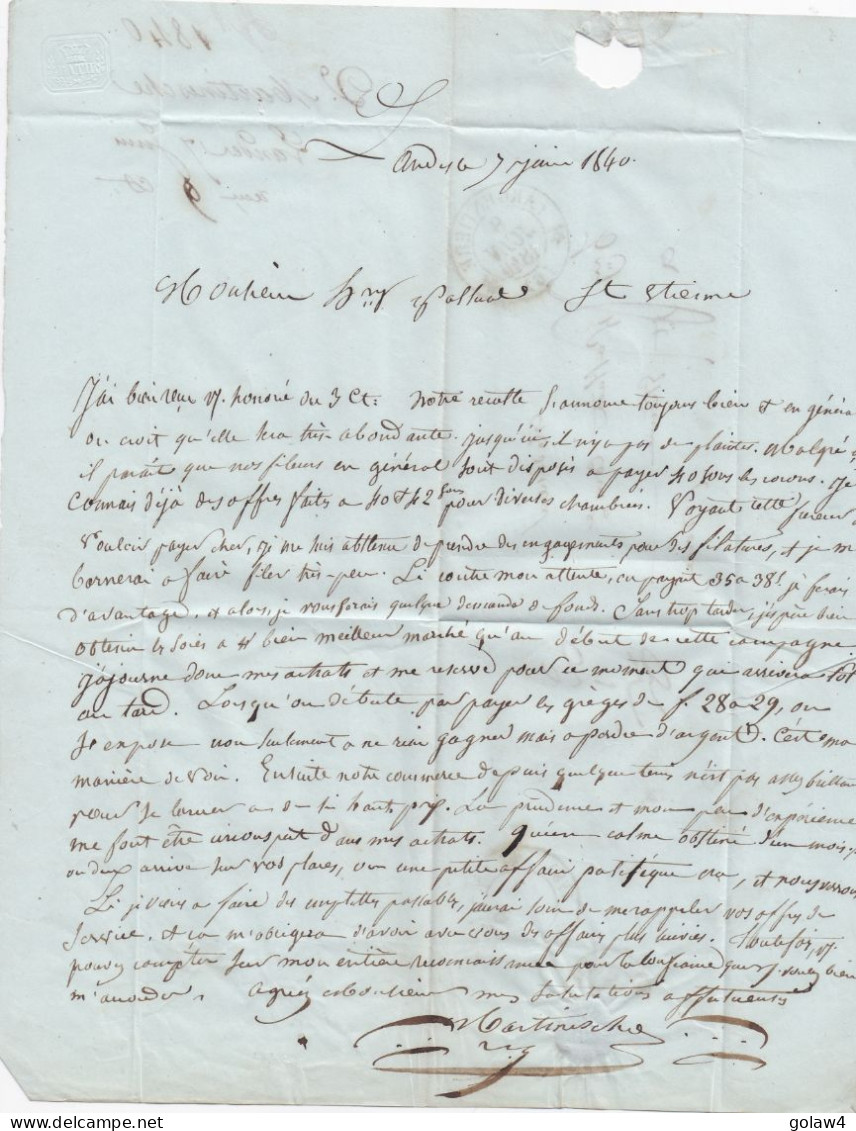 1840
D. Martinesche
7 juin 1840.
Monsieur hry Palluat St Etienne
J'ai bien reçu v/. honoré du 3 Ct. Notre recolte s'annonce toujours bien et en général
on croit qu'elle sera très abondante. jusqu'ici, il n'y a pas de plaintes. Malgré
il parait que nos fileurs en général sont disposés a payer 40 sous les cocons. Je
connais déjà des offres faites a 40 et 42 sous pour diverses chambrées. Voyant cette fureur a
vouloir payer cher, je me suis abstenu de prendre des engagements pour des filatures, et je me
bornerai a faire filer très-peu. Si contre mon attente, on payait 35 a 38 s. je ferais
d'avantage, et alors je vous ferais quelque demande de fonds. Sans trop tarder, j'espère bien
obtenir les soies a bien meilleur marché qu'au début de cette campagne.
j'ajourne donc mes achats et me reserve pour ce moment qui arrivera tot
ou tard. Lorsqu'on débute par payer les grèges de f. 28 a 29, on
s'expose non seulement a ne rien gagner mais a perdre d'argent. C'est ma
manière de voir. Ensuite notre commerce depuis quelque tems n'est pas assez brillant
pour se lancer a de si hauts prix. La prudence et mon peu d'expérience
me font être circonspect dans mes achats. qu'un calme obstiné d'un mois
ou deux arrive sur vos places, ou une petite affaire politique, et nous verrons
Si je viens a faire des emplettes passables, j'aurai soin de me rappeler vos offres de
service, et ca m'obligera d'avoir avec vous des affaires plus suivies. Toutefois, v/.
pouvez compter sur mon entière reconnaissance pour la confiance que v/. voulez bien
m'accorder. agréez Monsieur mes salutations affectueuses
Martinesche
golaw4